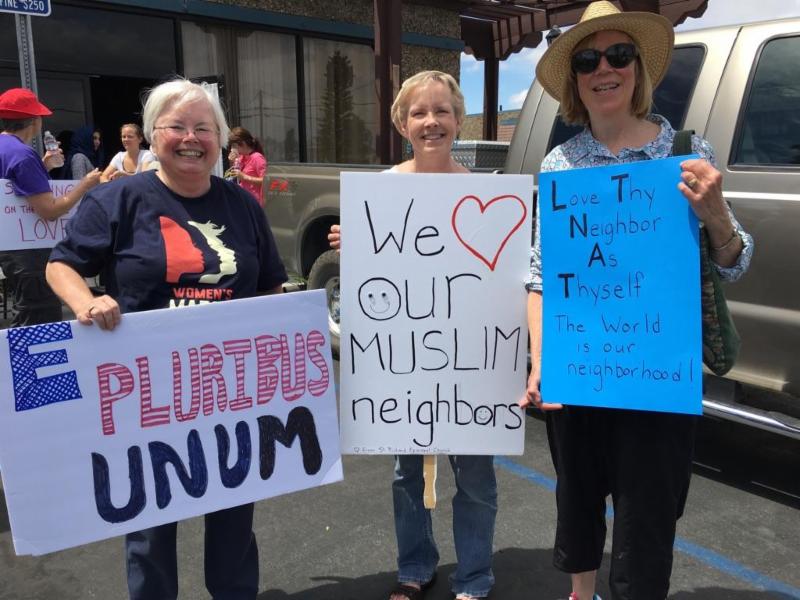 FINE $250
S
ON THE
LOVE
FX
WOMEN'S
E PLURIBUS
UNUM
We ♡
Our
MUSLIM
neighbors
♡ From St. Richard Episcopal Church
Love Thy
Neighbor
As
Thyself
The World
is our
neighborhood!